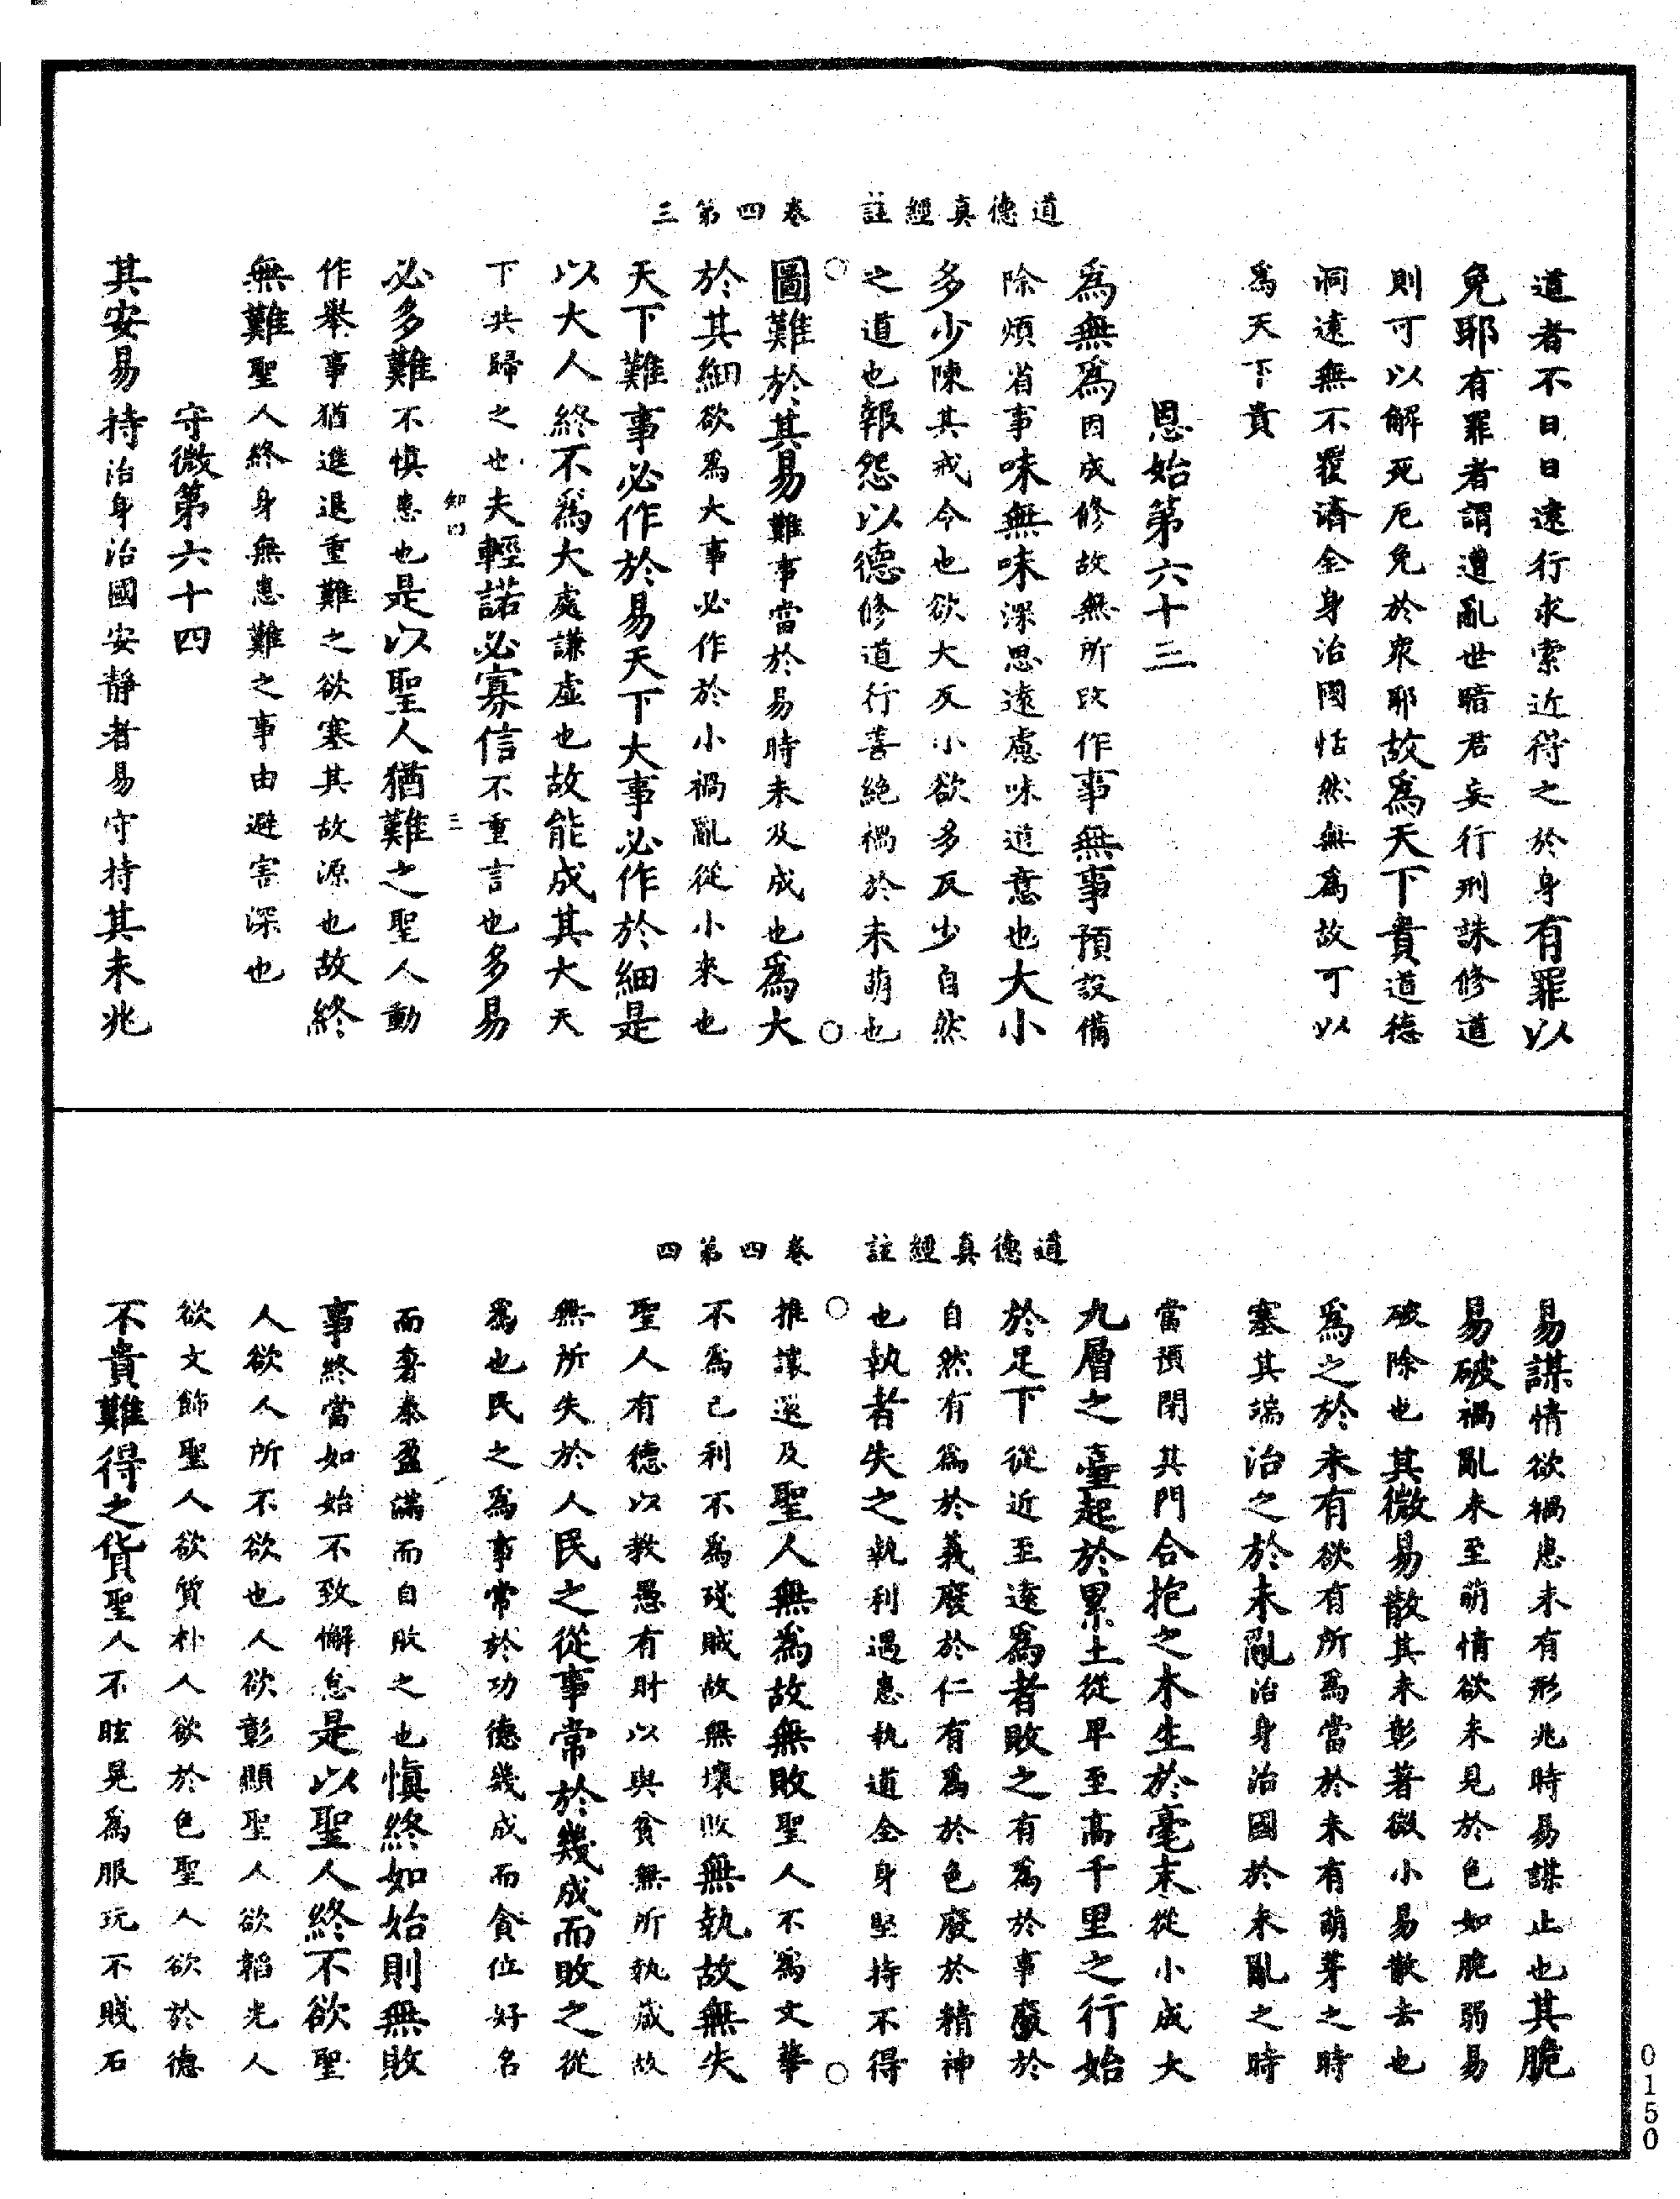 道德真經註　卷四第三
道者不日日遠行求索近得之於身有罪以
免耶有罪者謂遭亂世暗君妄行刑誅修道
則可以解死厄免於衆耶故爲天下貴道德
洞遠無不覆濟全身治國恬然無爲故可以
爲天下貴
恩始第六十三
爲無爲因成修故無所改作事無事預設備
除煩省事味無味深思遠慮味道意也大小
多少陳其戒令也欲大反小欲多反少自然
之道也報怨以德修道行善絶禍於未萌也
圖難於其易難事當於易時未及成也爲大
於其細欲爲大事必作於小禍亂從小來也
天下難事必作於易天下大事必作於細是
以大人終不爲大處謙虛也故能成其大天
下共歸之也夫輕諾必寡信不重言也多易
知四　三
必多難不愼患也是以聖人猶難之聖人動
作舉事猶進退重難之欲塞其故源也故終
無難聖人終身無患難之事由避害深也
守微第六十四
其安易持治身治國安靜者易守持其未兆
道德真經註　卷四第四
易謀情欲禍患未有形兆時易謀止也其脆
易破禍亂未至萌情欲未見於色如脆弱易
破除也其微易散其未彰著微小易散去也
爲之於未有欲有所爲當於未有萌芽之時
塞其端治之於未亂治身治國於未亂之時
當預閉其門合抱之木生於毫末從小成大
九層之臺起於累土從早至高千里之行始
於足下從近至遠爲者敗之有爲於事廢於
自然有爲於義廢於仁有爲於色廢於精神
也執者失之執利遇患執道全身堅持不得
推讓還及聖人無爲故無敗聖人不爲文華
不爲己利不爲殘賊故無壞敗無執故無失
聖人有德以教愚有財以與貧無所執藏故
無所失於人民之從事常於幾成而敗之從
爲也民之爲事常於功德幾成而貪位好名
而奢泰盈滿而自敗之也愼終如始則無敗
事終當如始不致懈怠是以聖人終不欲聖
人欲人所不欲也人欲彰顯聖人欲韜光人
欲文飾聖人欲質朴人欲於色聖人欲於德
不貴難得之貨聖人不眩晃爲服玩不賤石
0150